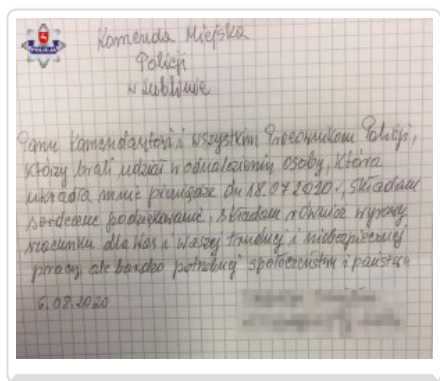 POLICJA
Komenda Miejska
Policji
w Lublinie
Panu Komendantowi i wszystkim Pracownikom Policji,
którzy brali udział w odnalezieniu osoby, która
ukradła mnie pieniądze dn 18.07.2020., składam
serdeczne podziękowanie, składam również wyrazy
szacunku dla Was i waszej trudnej i niebezpiecznej
pracy, ale bardzo potrzebnej społeczeństwu i państwu
6.08.2020